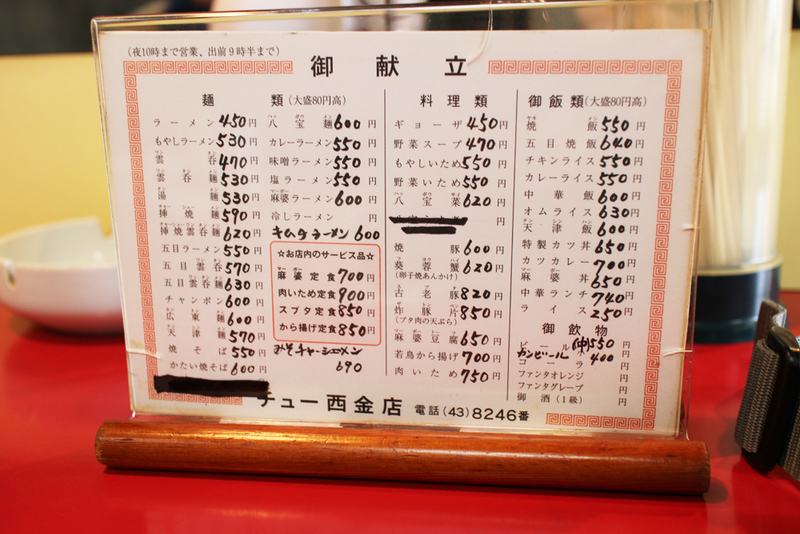 (夜10時まで営業、出前9時半まで)
御献立
麺類(大盛80円高)
ラーメン 450円
もやしラーメン 530円
雲呑 470円
雲呑麺 530円
湯麺 530円
挿焼麺 590円
挿焼雲呑麺 620円
五目ラーメン 550円
五目雲呑 570円
五目雲呑麺 630円
チャンポン 600円
広東麺 600円
天津麺 570円
焼そば 550円
かたい焼そば 600円
八宝麺 600円
カレーラーメン 550円
味噌ラーメン 550円
塩ラーメン 550円
麻婆ラーメン 600円
冷しラーメン 円
キムチラーメン 600
☆お店内のサービス品☆
麻婆定食 700円
肉いため定食 900円
スブタ定食 850円
から揚げ定食 850円
みそチャーシューメン
690
料理類
ギョーザ 450円
野菜スープ 470円
もやしいため 550円
野菜いため 550円
八宝菜 620円
円
焼豚 600円
葵蓉蟹 620円
(卵子焼あんかけ)
古老豚 820円
炸豚片 850円
(ブタ肉の天ぷら)
麻婆豆腐 650円
若鳥から揚げ 700円
肉いため 750円
御飯類(大盛80円高)
焼飯 550円
五目焼飯 640円
チキンライス 550円
カレーライス 550円
中華飯 600円
オムライス 630円
天津飯 600円
特製カツ丼 650円
カツカレー 700円
麻婆丼 650円
中華ランチ 740円
ライス 250円
御飲物
ビール (中)550円
カンビール 400
コーラ 円
ファンタオレンジ 円
ファンタグレープ 円
御酒(1級) 円
チュー西金店 電話(43)8246番